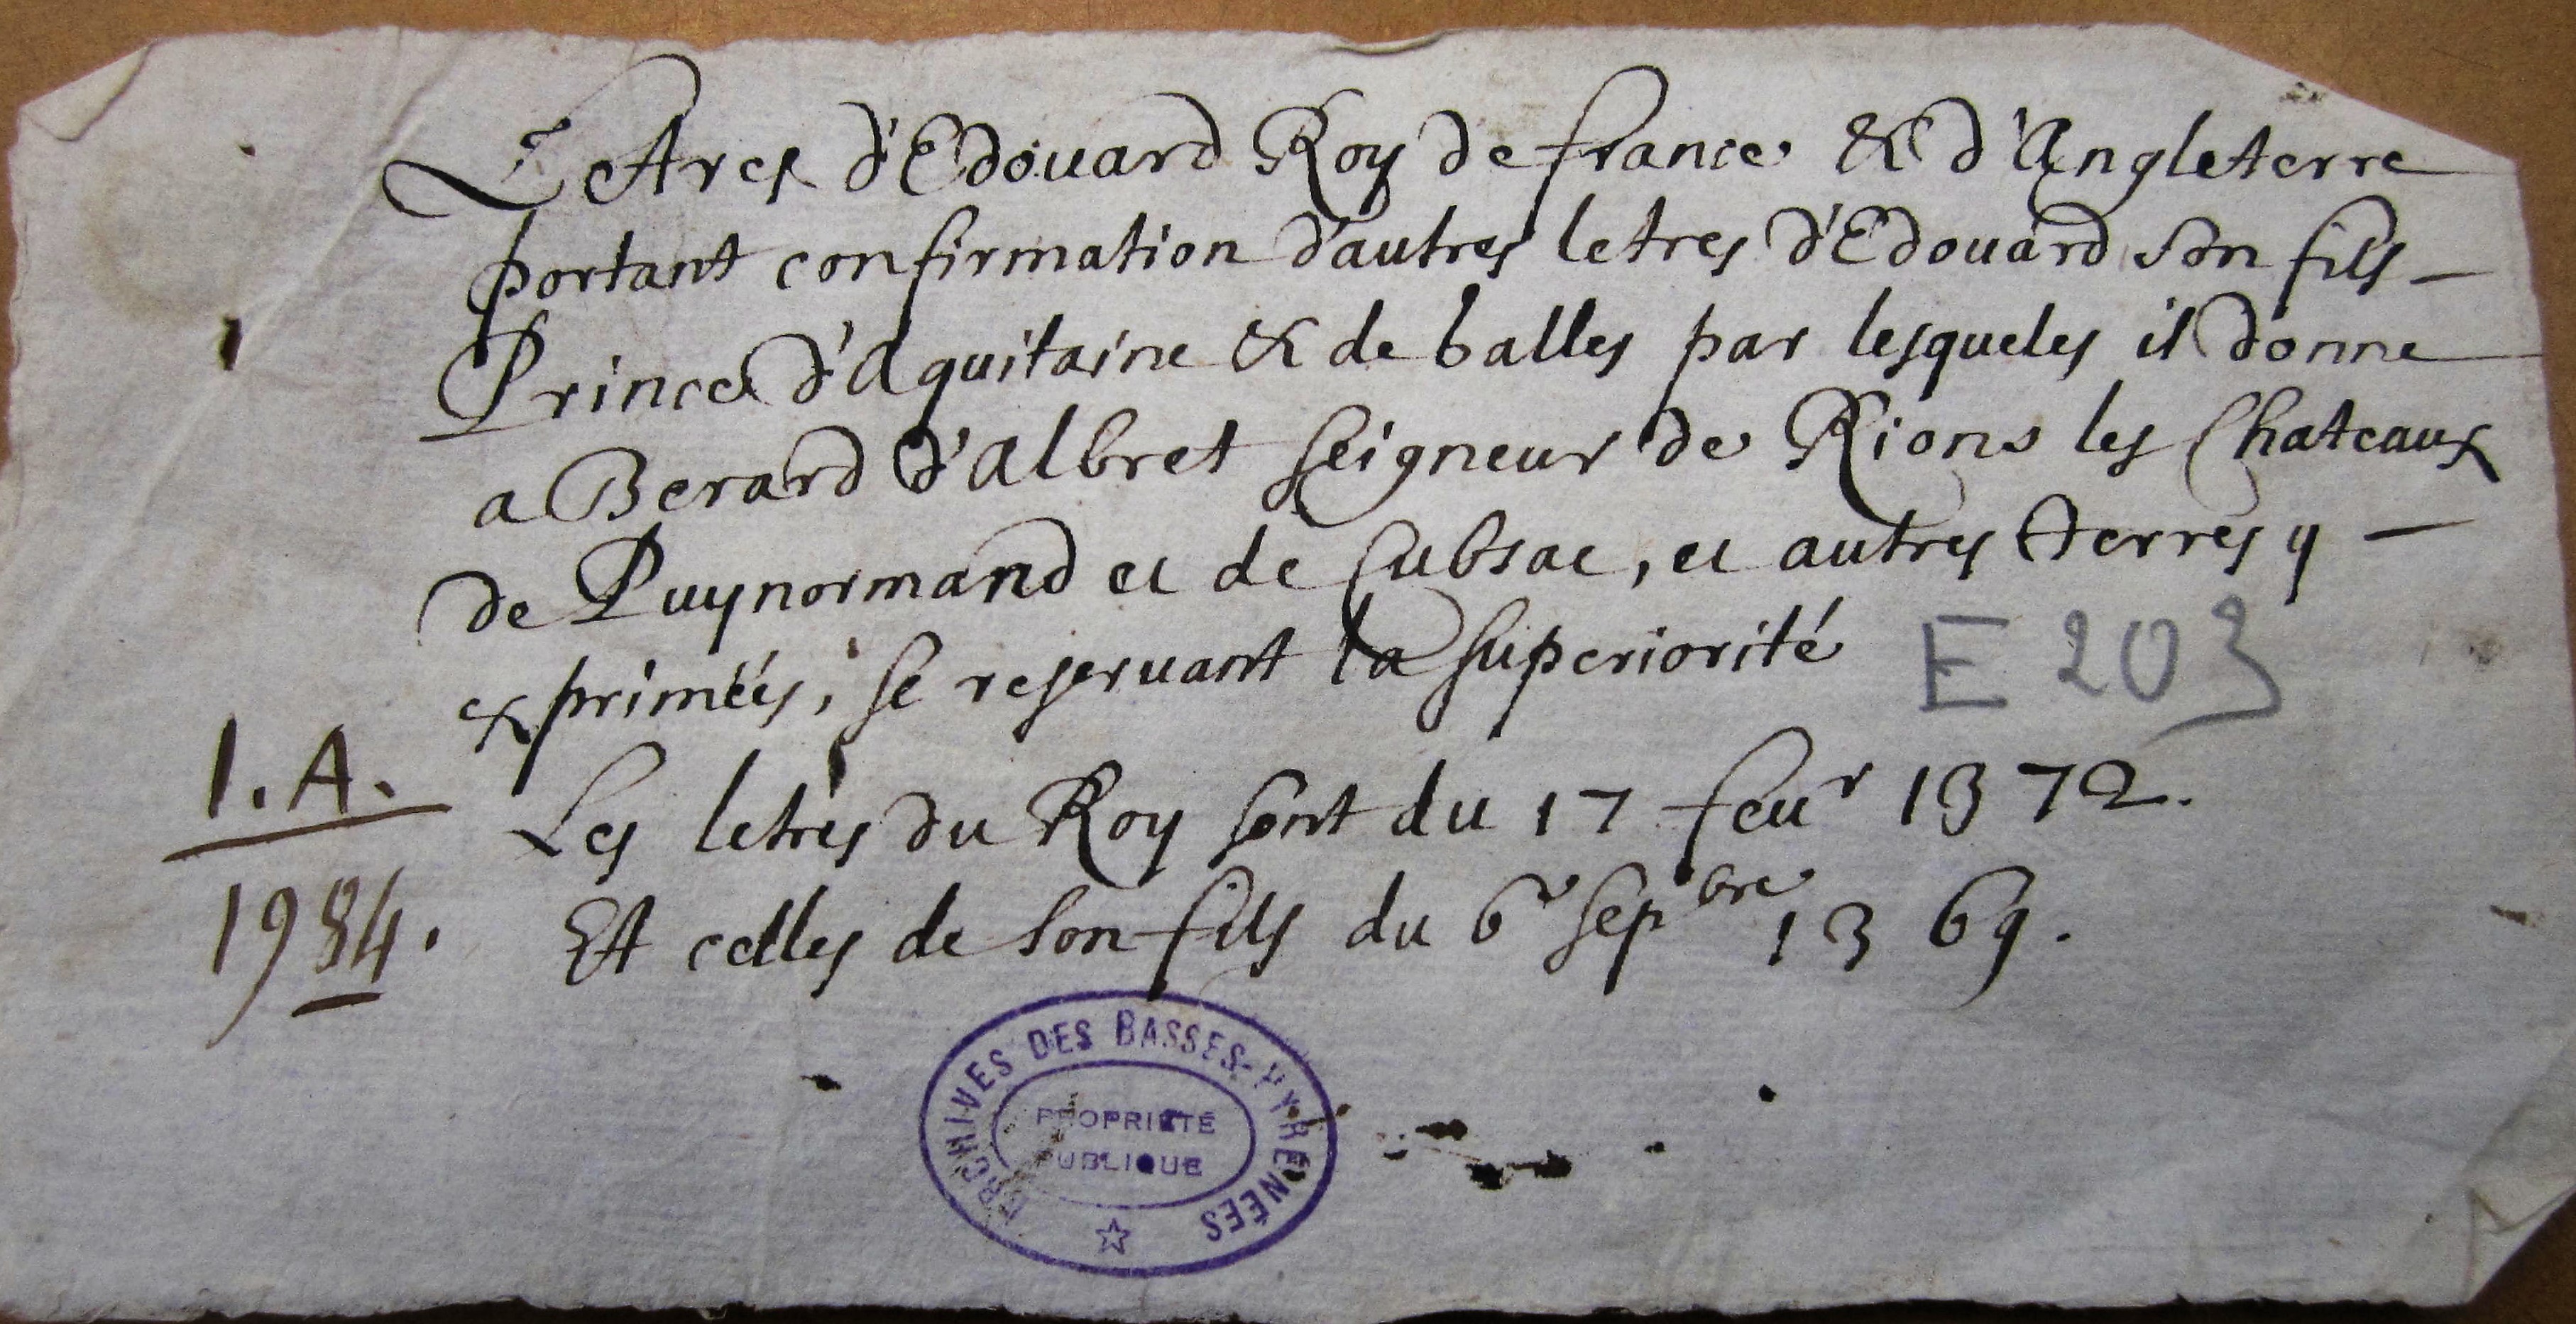 Letres d'Edouard Roy de france & d'Angleterre
portant confirmation d'autres letres d'Edouard son fils —
Prince d'Aquitaine & de Galles par lesqueles il donne
a Berard d'Albret seigneur de Rions les Chateaux
de Puynormand et de Cubsac, et autres terres y —
exprimées, se reservant la superiorité
E 203
I. A.
1984.
Les letres du Roy sont du 17 feur 1372.
Et celles de son fils du 6e sepbre 1369.
ARCHIVES DES BASSES-PYRÉNÉES
PROPRIÉTÉ
PUBLIQUE